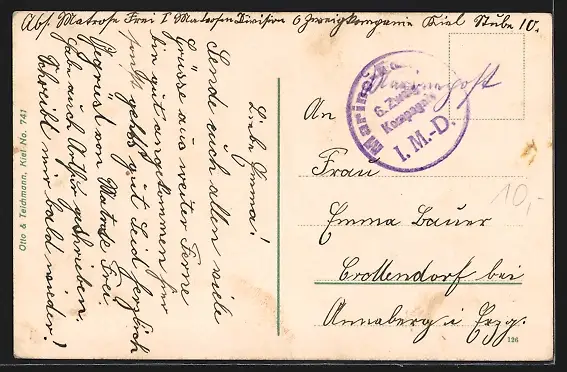 Abs. Matrose Frei I Matrosen-Division 6 Zweigkompanie Kiel Stube 10.
Liebe Emma!
Sende euch allen viele
Grüsse aus weiter Ferne
bin gut angekommen hier
sonst gehts gut Seid herzlich
Gegrüst von Matrose Frei.
hab auch Arthur geschrieben.
Schreibt mir bald wieder!
Otto & Teichmann, Kiel No. 741
Marinepost
6. Zweig
Kompagnie
I. M.-D.
An
Frau
Emma Bauer
Crottendorf bei
Annaberg i Erzg.
10,-
126